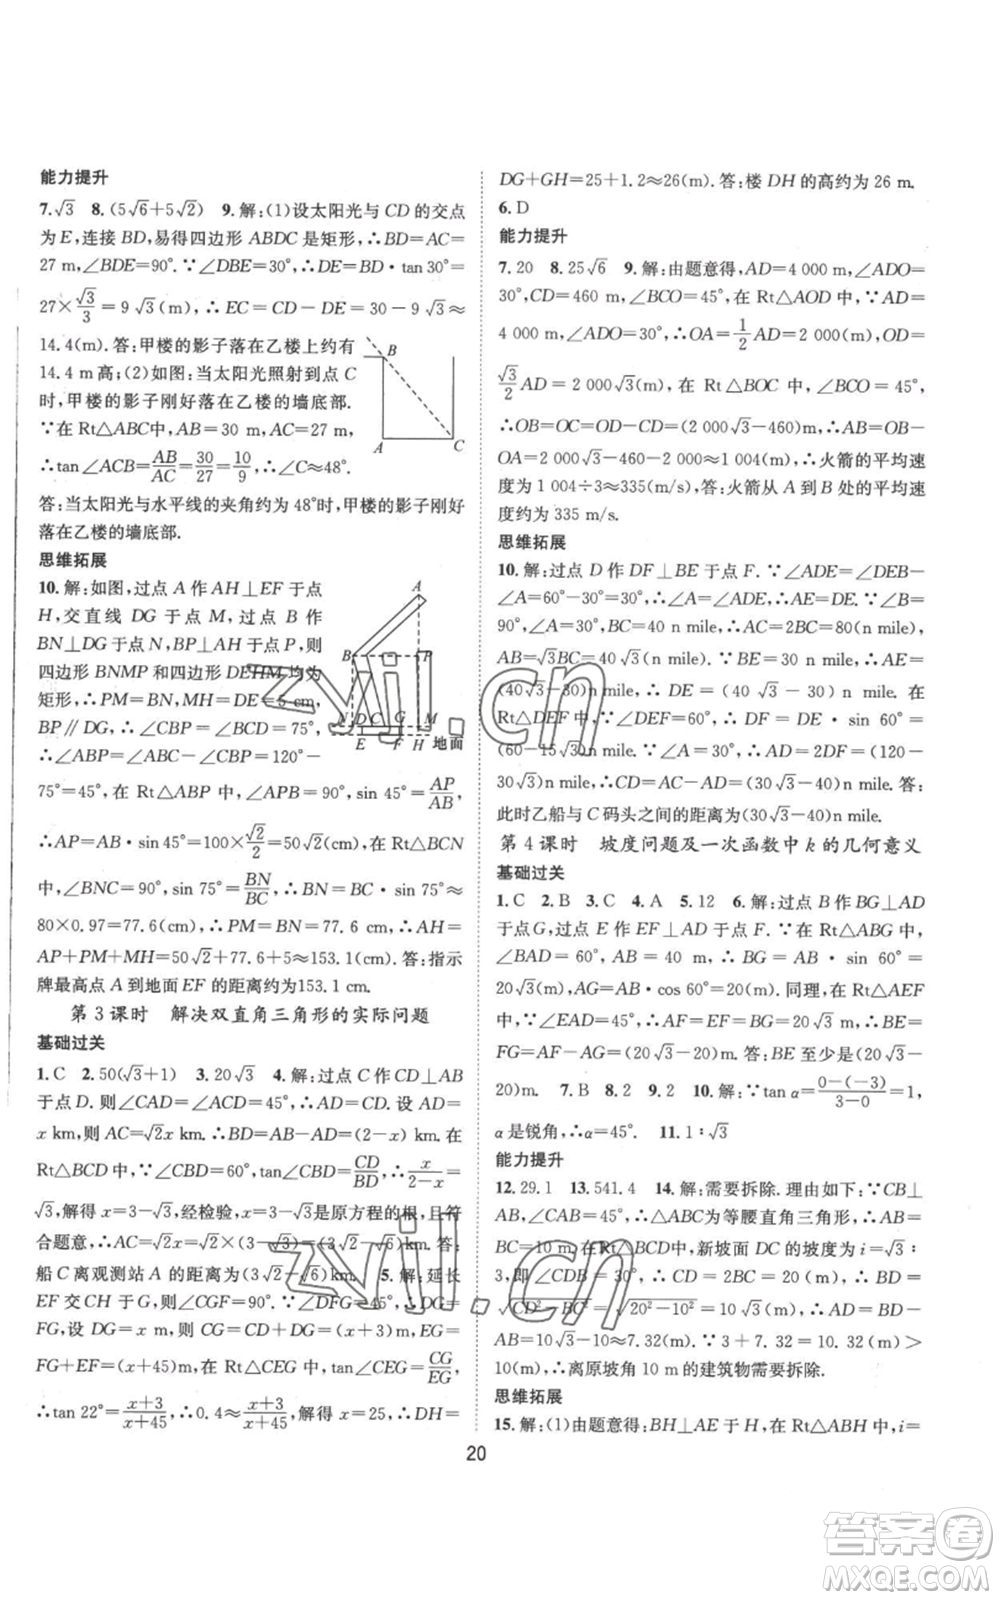 能力提升
7.√3 8.(5√6+5√2) 9.解:(1)设太阳光与 CD 的交点
为 E,连接 BD,易得四边形 ABDC 是矩形,∴BD=AC=
27 m,∠BDE=90°.∵∠DBE=30°,∴DE=BD·tan 30°=
27×√3/3=9√3(m),∴EC=CD-DE=30-9√3≈
14.4(m).答:甲楼的影子落在乙楼上约有
14.4 m高;(2)如图:当太阳光照射到点 C
时,甲楼的影子刚好落在乙楼的墙底部.
∵在 Rt△ABC中,AB=30 m,AC=27 m,
∴tan∠ACB=AB/AC=30/27=10/9,∴∠C≈48°.
答:当太阳光与水平线的夹角约为 48°时,甲楼的影子刚好
落在乙楼的墙底部.
B
A
C
思维拓展
10.解:如图,过点 A 作 AH⊥EF 于点
H,交直线 DG 于点 M,过点 B 作
BN⊥DG于点 N,BP⊥AH于点 P,则
四边形 BNMP 和四边形 DEHM 均为
矩形,∴PM=BN,MH=DE=5 cm,
BP∥DG,∴∠CBP=∠BCD=75°,
∴∠ABP=∠ABC-∠CBP=120°-
75°=45°,在 Rt△ABP 中,∠APB=90°,sin 45°=AP/AB,
∴AP=AB·sin 45°=100×√2/2=50√2(cm),在 Rt△BCN
中,∠BNC=90°,sin 75°=BN/BC,∴BN=BC·sin 75°≈
80×0.97=77.6(cm),∴PM=BN=77.6 cm,∴AH=
AP+PM+MH=50√2+77.6+5≈153.1(cm).答:指示
牌最高点 A 到地面 EF 的距离约为153.1 cm.
A
B
P
N D C G M
E F H 地面
第 3 课时 解决双直角三角形的实际问题
基础过关
1.C 2.50(√3+1) 3.20√3 4.解:过点 C 作 CD⊥AB
于点 D.则∠CAD=∠ACD=45°,∴AD=CD. 设 AD=
x km,则 AC=√2x km.∴BD=AB-AD=(2-x) km. 在
Rt△BCD 中,∵∠CBD=60°,tan∠CBD=CD/BD,∴x/(2-x)=
√3,∴x=3-√3,经检验,x=3-√3是原方程的根,且符
合题意,∴AC=√2x=√2×(3-√3)=(3√2-√6)km.答:
船 C 离观测站 A 的距离为(3√2-√6)km. 5.解:延长
EF 交 CH 于 G,则∠CGF=90°.∵∠DFG=45°,∴DG=
FG.设 DG=x m,则 CG=CD+DG=(x+3)m,EG=
FG+EF=(x+45)m.在 Rt△CEG 中,tan∠CEG=CG/EG,
∴tan 22°=(x+3)/(x+45),∴0.4≈(x+3)/(x+45),解得 x≈25,∴DH=
DG+GH=25+1.2≈26(m).答:楼 DH 的高约为 26 m.
6.D
能力提升
7.20 8.25√6 9.解:由题意得,AD=4 000 m,∠ADO=
30°,CD=460 m,∠BCO=45°,在 Rt△AOD 中,∵AD=
4 000 m,∠ADO=30°,∴OA=1/2AD=2 000(m),OD=
√3/2AD=2 000√3(m),在 Rt△BOC 中,∠BCO=45°,
∴OB=OC=OD-CD=(2 000√3-460)m,∴AB=OB-
OA=2 000√3-460-2 000≈1 004(m),∴火箭的平均速
度为 1 004÷3≈335(m/s),答:火箭从 A 到 B 处的平均速
度约为 335 m/s.
思维拓展
10.解:过点 D 作 DF⊥BE于点 F.∵∠ADE=∠DEB-
∠A=60°-30°=30°,∴∠A=∠ADE,∴AE=DE.∵∠B=
90°,∠A=30°,BC=40 n mile,∴AC=2BC=80(n mile),
AB=√3BC=40√3(n mile).∵BE=30 n mile,∴AE=
(40√3-30)n mile,∴DE=(40√3-30)n mile. 在
Rt△DEF 中,∵∠DEF=60°,∴DF=DE·sin 60°=
(60-15√3)n mile.∵∠A=30°,∴AD=2DF=(120-
30√3)n mile,∴CD=AC-AD=(30√3-40)n mile. 答:
此时乙船与 C 码头之间的距离为(30√3-40)n mile.
第 4 课时 坡度问题及一次函数中 k 的几何意义
基础过关
1.C 2.B 3.C 4.A 5.12 6.解:过点 B 作 BG⊥AD
于点 G,过点 E 作 EF⊥AD 于点 F.在 Rt△ABG 中,
∵AB=40 m,∠BAD=60°,∴BG=AB·sin 60°=
20√3(m),AG=AB·cos 60°=20(m).同理,在 Rt△AEF
中,∵∠EAD=45°,∴AF=EF=BG=20√3 m,∴BE=
FG=AF-AG=20(√3-1)m.答:BE至少是(20√3-
20)m. 7.B 8.2 9.2 10.解:∵tan α=(0-(-3))/(3-0)=1,
α 是锐角,∴α=45°. 11.1∶√3
能力提升
12.29.1 13.541.4 14.解:需要拆除. 理由如下:∵CB⊥
AB,∠CAB=45°,∴△ABC为等腰直角三角形,∴AB=
BC=10 m.在 Rt△BCD中,新坡面 DC 的坡度为 i=√3∶
3,即∠CDB=30°,∴CD=2BC=20 m,∴BD=
√(CD²-BC²)=√(20²-10²)=10√3(m),∴AD=BD-
AB=10√3-10≈7.32(m).∵3+7.32=10.32(m)>
10(m),∴离原坡角 10 m 的建筑物需要拆除.
思维拓展
15.解:(1)由题意得:BH⊥AE 于 H,在 Rt△ABH 中,i=
20
zyjl.cn
zyjl.cn
答案圈
MXQE.COM